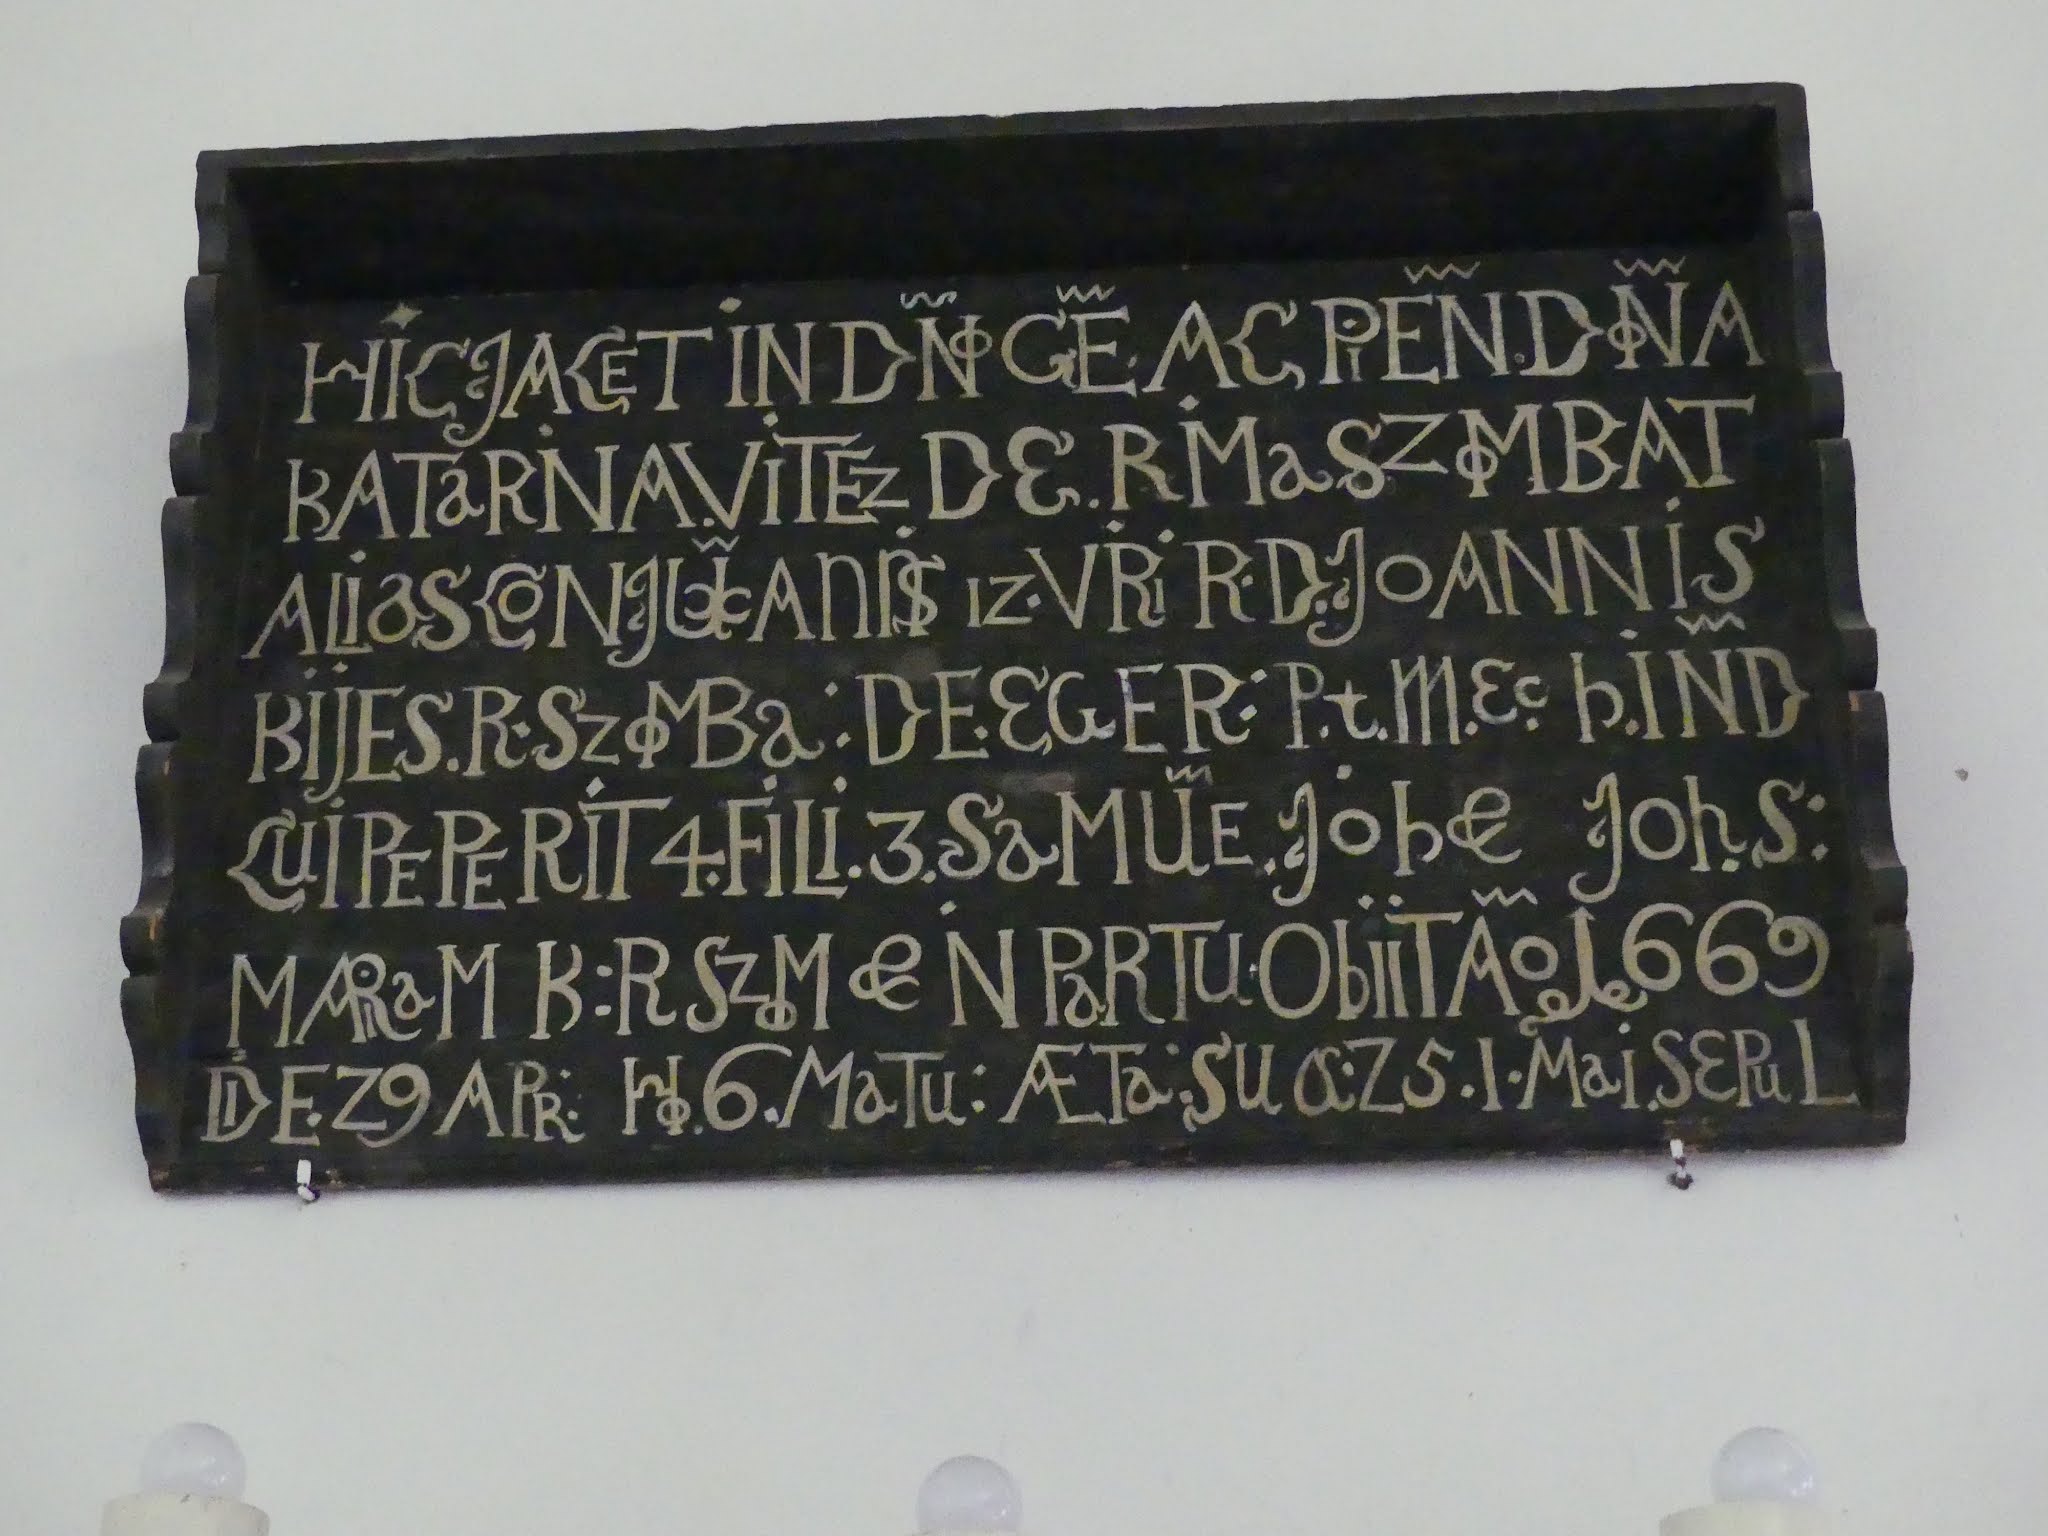 HIC JACET IN DÑO GE̅. AC PIEÑ. D DÑOA
KATARINA. VITEZ DE. RIMaSZOMBAT
ALiaS CONJUX ANIS 12. VIRI R. D. JOANNIS
KIJES. R. SZOMBa: DE. EGER: P. t. M. Ec. h. IND
CUI PEPERIT 4. FILI. 3. SaMUE. Job & Joh. S:
MARIaM K: R SZOM & IN PaRTU. ObiiT Ão 1669
DIE. 29 APR: HO. 6. MaTU: ÆTa: SUÆ: 25. 1. Mai. SEPuL